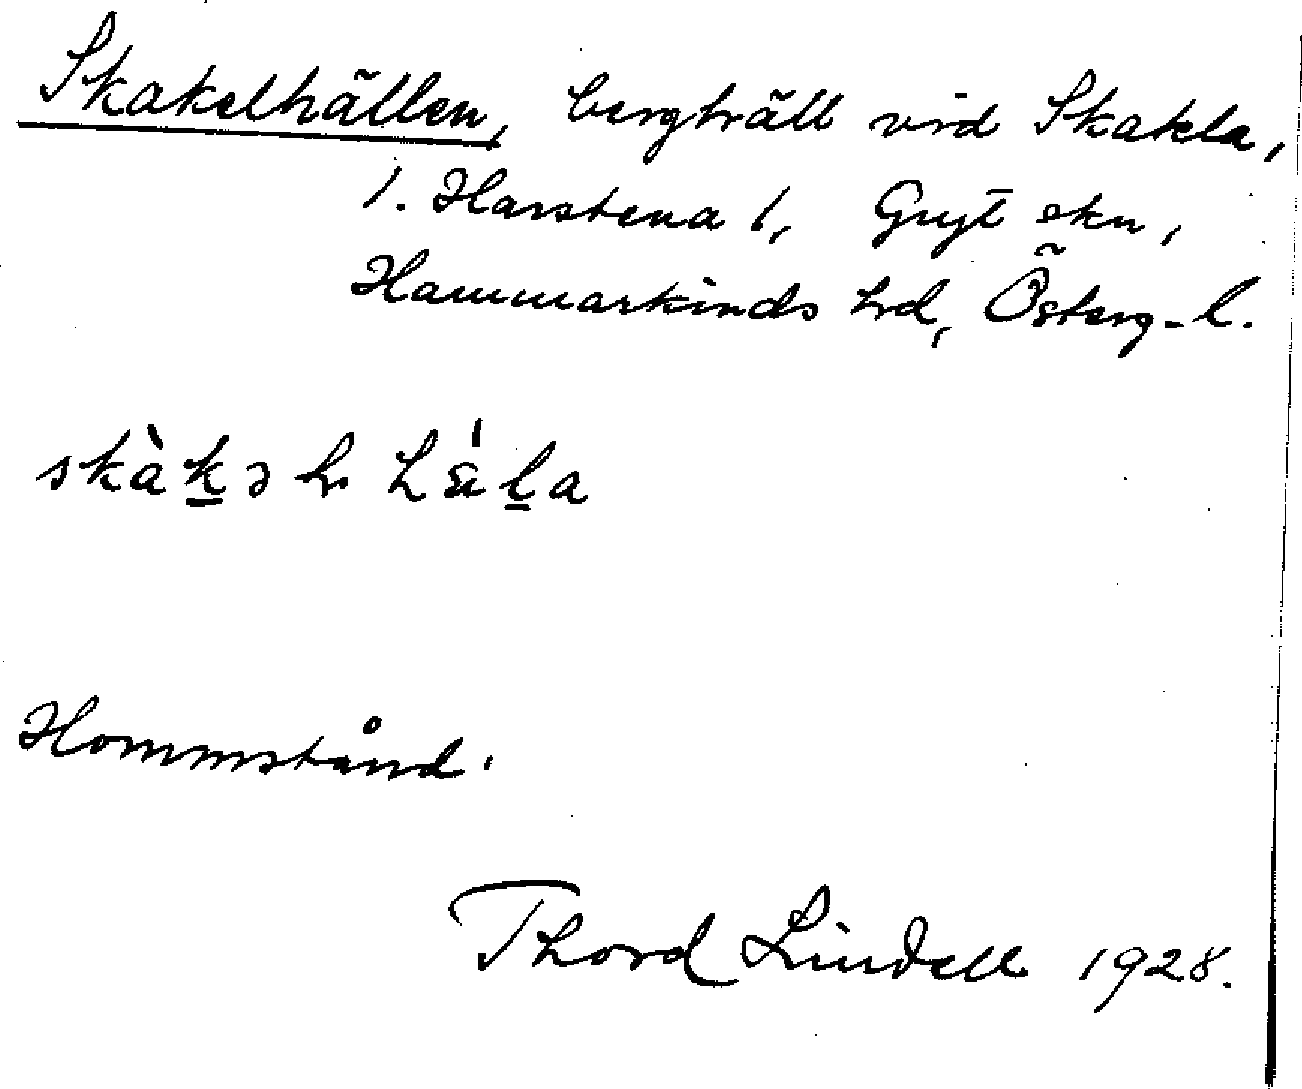 Skakelhällen, berghäll vid Skakla,
1. Harstena 1, Gryt skn,
Hammarkinds hd, Österg-l.
Hommstånd.
Thord Lindell 1928.